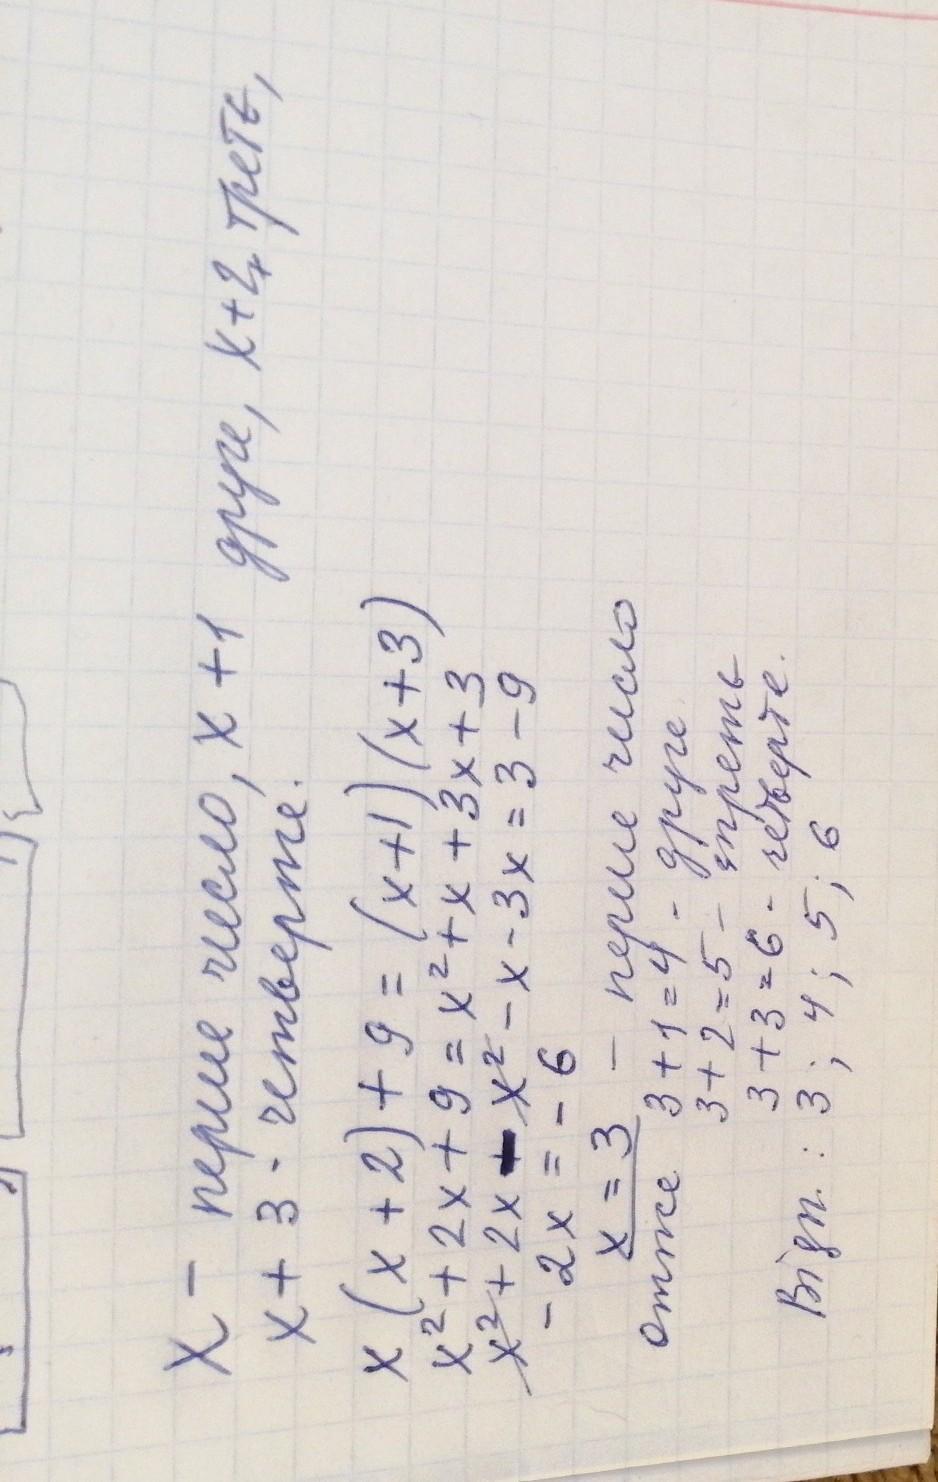 x – перше число, x + 1 друге, x+2 третє,
x + 3 - четверте.
x(x+2)+9=(x+1)(x+3)
x²+2x+9=x²+x+3x+3
x²+2x-x²-x-3x=3-9
-2x=-6
x=3 – перше число
отже 3+1=4 - друге
3+2=5 - третє
3+3=6 - четверте.
Відп.: 3; 4; 5; 6